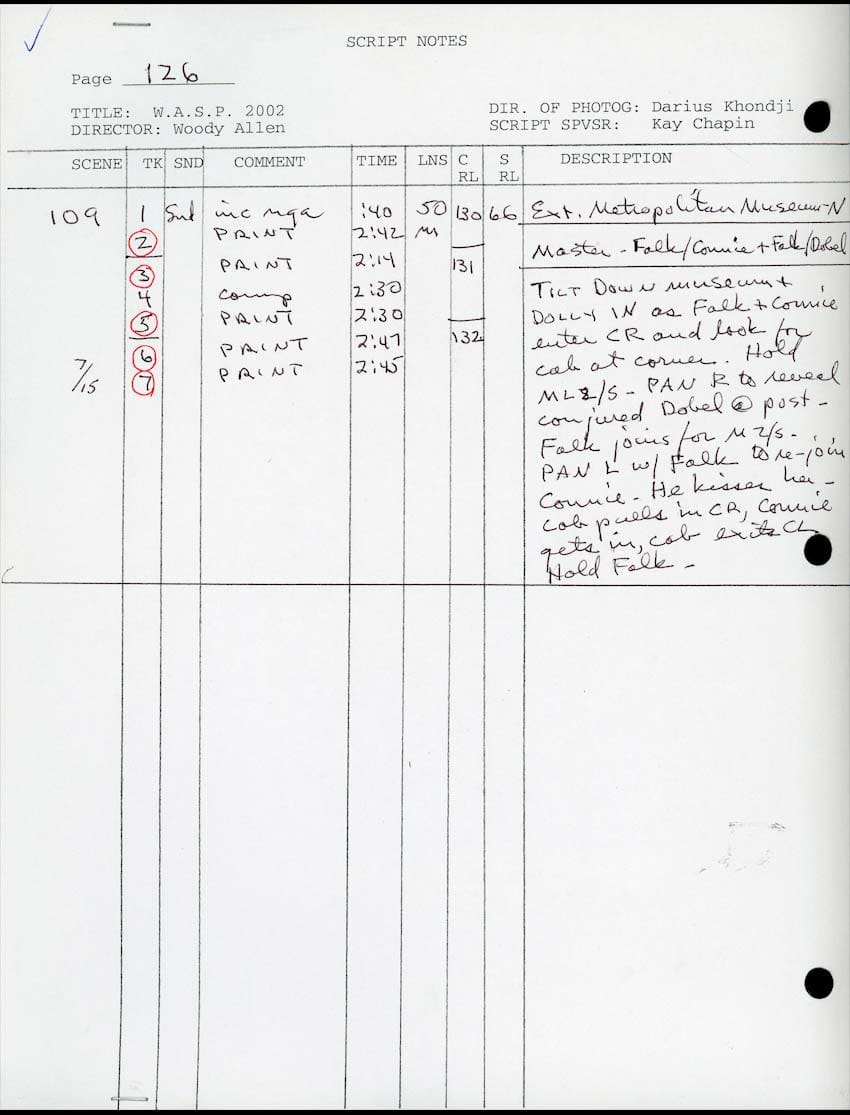 SCRIPT NOTES
Page 126
TITLE: W.A.S.P. 2002
DIR. OF PHOTOG: Darius Khondji
DIRECTOR: Woody Allen
SCRIPT SPVSR: Kay Chapin
SCENE TK SND COMMENT TIME LNS C RL S RL DESCRIPTION
109 1 Snd inc nga :40 50 130 66 Ext. Metropolitan Museum-N
2 PRINT 2:42 M
Master - Falk/Connie + Falk/Dobel
3 PRINT 2:14 131
4 comp 2:30
5 PRINT 2:30
6 PRINT 2:47 132
7 PRINT 2:45
7/15
TILT DOWN museum +
DOLLY IN as Falk + Connie
enter CR and look for
cab at corner. Hold
ML2/S - PAN R to reveal
conjured Dobel @ post -
Falk joins for M 2/s -
PAN L w/ Falk to re-join
Connie - He kisses her -
cab pulls in CR, Connie
gets in, cab exits CL
Hold Falk -